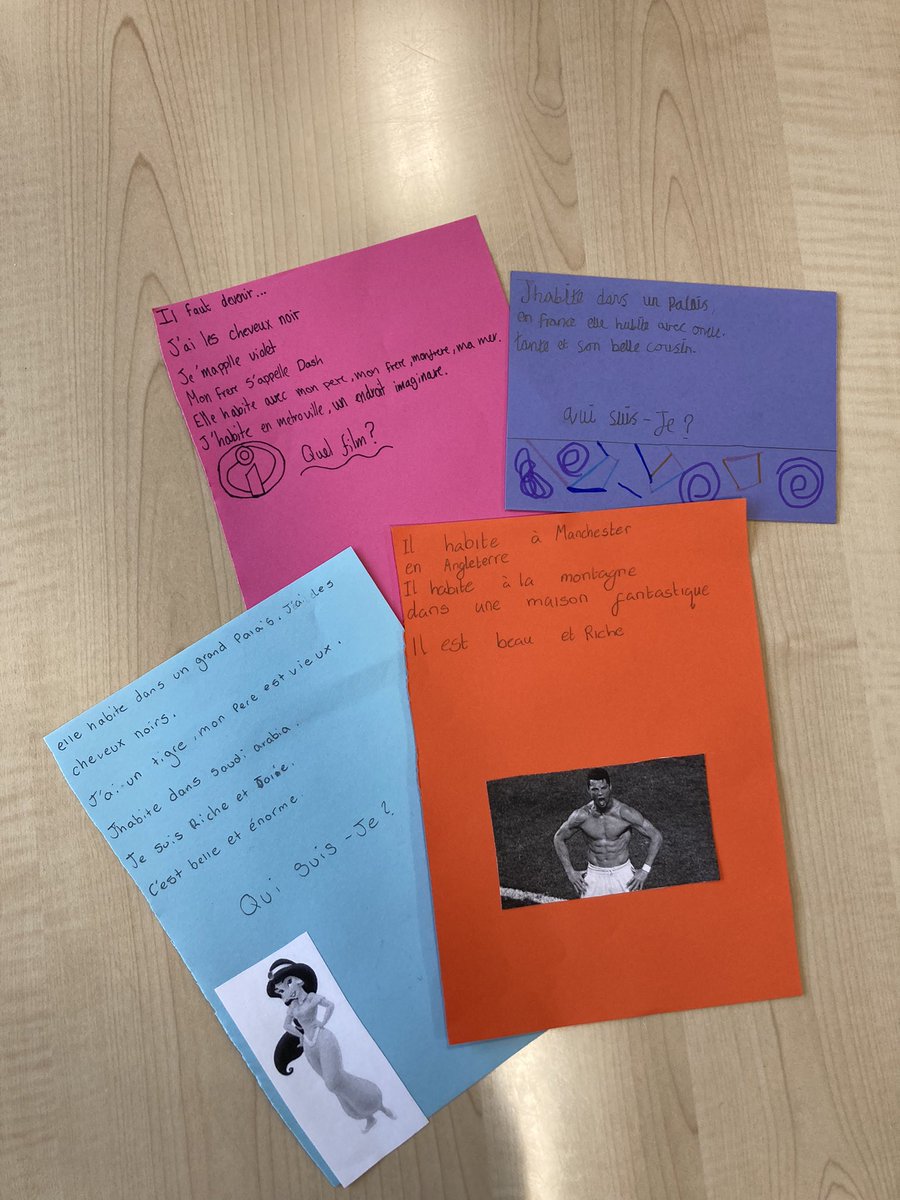 Il faut devenir...
J'ai les cheveux noir
Je'mapplle violet
Mon frere s'appelle Dash
Elle habite avec mon pere, mon frere, monfrere, ma mer.
J'habite en metroville, un endroit imaginare.
i
Quel film?
J'habite dans un palais
en france elle habite avec oncle.
tante et son belle cousin.
qui suis-Je?
Il habite à Manchester
en Angleterre
Il habite à la montagne
dans une maison fantastique
Il est beau et Riche
elle habite dans un grand Palais. J'ai des
cheveux noirs.
J'ai un tigre, mon Pere est vieux.
Jhabite dans saudi arabia.
Je suis Riche et
C'est belle et énorme.
Qui suis-Je?